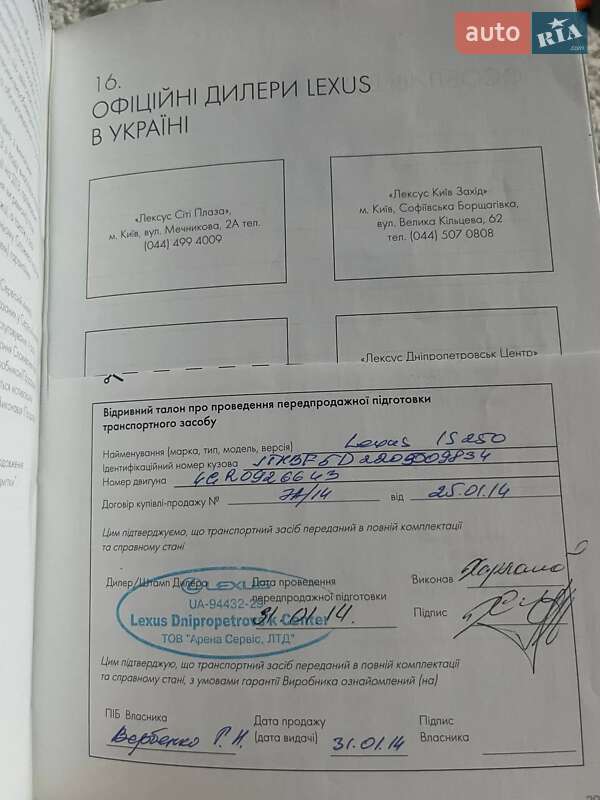 auto RIA.com
16.
ОФІЦІЙНІ ДИЛЕРИ LEXUS
В УКРАЇНІ
«Лексус Сіті Плаза»,
м. Київ, вул. Мечникова, 2А тел.
(044) 499 4009
«Лексус Київ Захід»
м. Київ, Софіївська Борщагівка,
вул. Велика Кільцева, 62
тел. (044) 507 0808
«Лексус Дніпропетровськ Центр»
Відривний талон про проведення передпродажної підготовки
транспортного засобу
Найменування (марка, тип, модель, версія) Lexus IS250
Ідентифікаційний номер кузова JTHBF5D2205009834
Номер двигуна 4GR0926643
Договір купівлі-продажу № /14 від 25.01.14
Цим підтверджуємо, що транспортний засіб переданий в повній комплектації
та справному стані
Дилер/Штамп Дилера
LEXUS
UA-94432-29
Lexus Dnipropetrovsk Center
ТОВ "Арена Сервіс, ЛТД"
Дата проведення
передпродажної підготовки
31.01.14.
Виконав
Підпис
Цим підтверджую, що транспортний засіб переданий в повній комплектації
та справному стані, з умовами гарантії Виробника ознайомлений (на)
ПІБ Власника
Вербенко Г. Н.
Дата продажу
(дата видачі) 31.01.14
Підпис
Власника